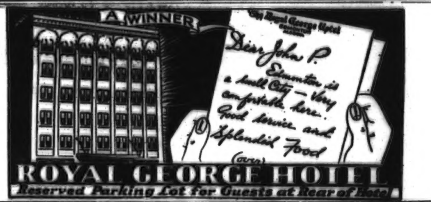 A WINNER
The Royal George Hotel
EDMONTON
Dear John P.
Edmonton is
a swell City - Very
comfortable here.
Good service and
Splendid Food
(over)
ROYAL GEORGE HOTEL
Reserved Parking Lot for Guests at Rear of Hotel